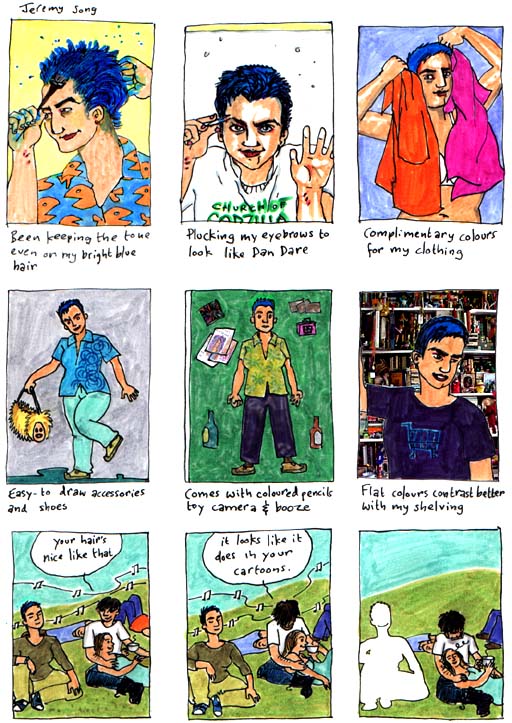 Jeremy Song
CHURCH OF
GODZILLA
Been keeping the tone
even on my bright blue
hair
Plucking my eyebrows to
look like Dan Dare
Complimentary colours
for my clothing
Easy-to draw accessories
and shoes
Comes with coloured pencils
toy camera & booze
Flat colours contrast better
with my shelving
your hair's
nice like that.
it looks like it
does in your
cartoons.